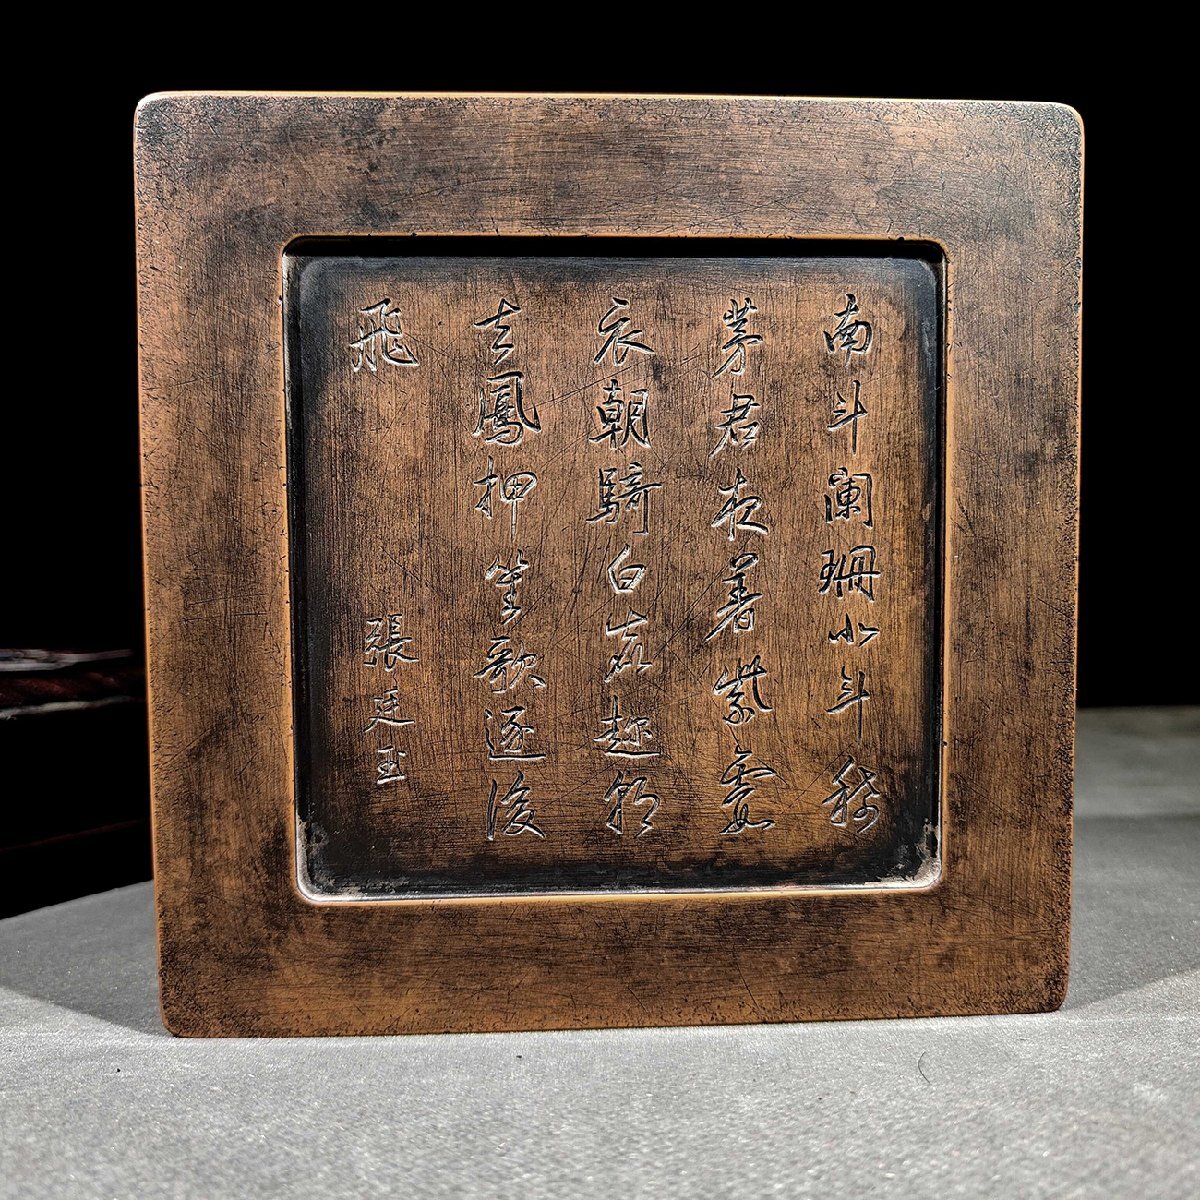 南斗阑珊北斗稀
茅君夜著紫霞
衣朝騎白鹿趁朝
去鳳押笙歌逐後
飛
張廷玉